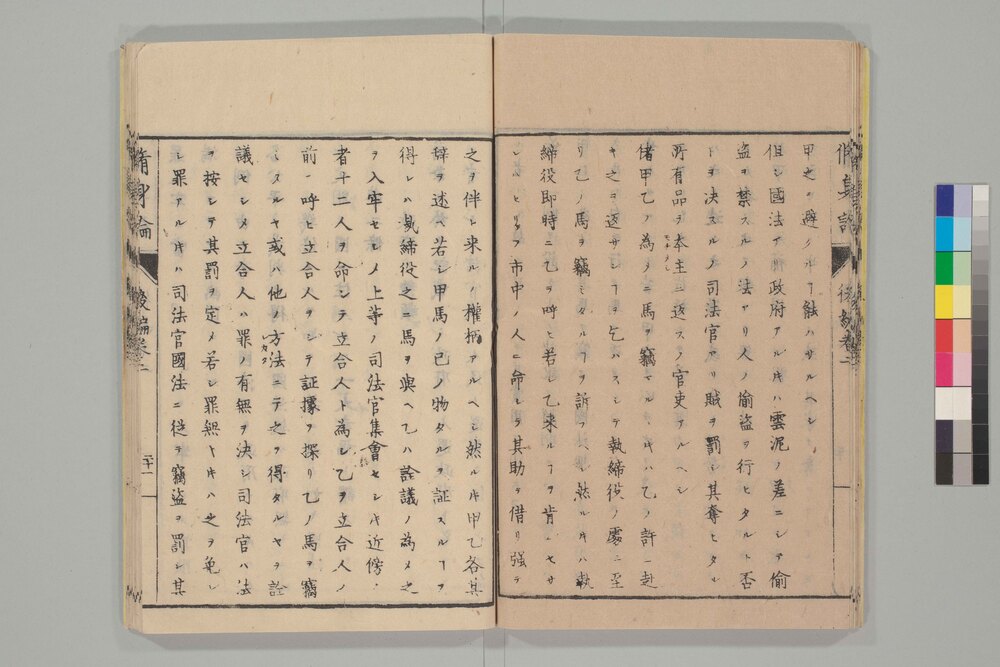 甲之ヲ避クルヿ能ハサルヘシ
但シ國法アリ政府アルキハ雲泥ノ差ニシテ偷
盗ヲ禁スルノ法アリ人ノ偷盗ヲ行ヒタルト否
トヲ决スルノ司法官アリ賊ヲ罰シ其奪ヒタル
所有品ヲ本主ニ返スノ官吏アルヘシ
偖甲乙ノ為メニ馬ヲ竊マルヽキハ乙ノ許ニ赴
キ之ヲ返サンヿヲ乞ハスシテ執締役ノ處ニ至
リ乙ノ馬ヲ竊ミタルヿヲ訴フヘシ然ルキハ執
締役即時ニ乙ヲ呼ヒ若シ乙来ルヿヲ肯ンセサ
レハ市中ノ人ニ命シテ其助ヲ借リ強テ
之ヲ伴レ来ルノ權柄アルヘシ然ルキ甲乙各其
辞ヲ述ヘ若シ甲馬ノ己ノ物タルヲ証スルヿヲ
得レハ執締役之ニ馬ヲ與ヘ乙ハ詮議ノ為メ之
ヲ入牢セシメ上等ノ司法官集會セシキ近傍ノ
者十二人ヲ命シテ立合人ト為シ乙ヲ立合人ノ
前ニ呼ヒ立合人ヲシテ証據ヲ探リ乙ノ馬ヲ竊
ミタルヤ或ハ他ノ方法ニテ之ヲ得タルヤヲ詮
議セシメ立合人ハ罪ノ有無ヲ决シ司法官ハ法
ヲ按シテ其罰ヲ定メ若シ罪無キキハ之ヲ免シ
シ罪アルキハ司法官國法ニ従テ竊盗ヲ罰シ其
脩身論 後編卷二
二十一